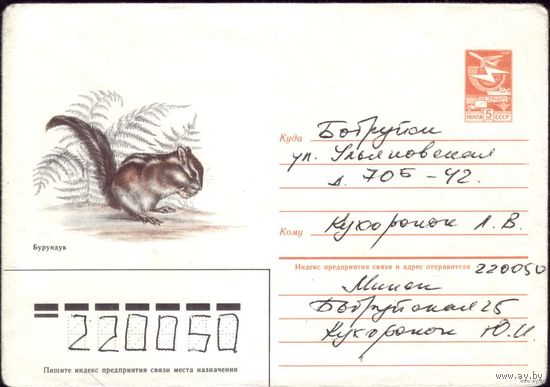 ПОЧТА 5к СССР
Куда Бобруйск
ул. Ульяновская
д. 70Б - 42.
Кому Кукоронок Л. В.
Бурундук
Индекс предприятия связи и адрес отправителя 220050
Минск
Бобруйская 25
Кукоронок Ю. И.
220050
Пишите индекс предприятия связи места назначения
www.ay.by